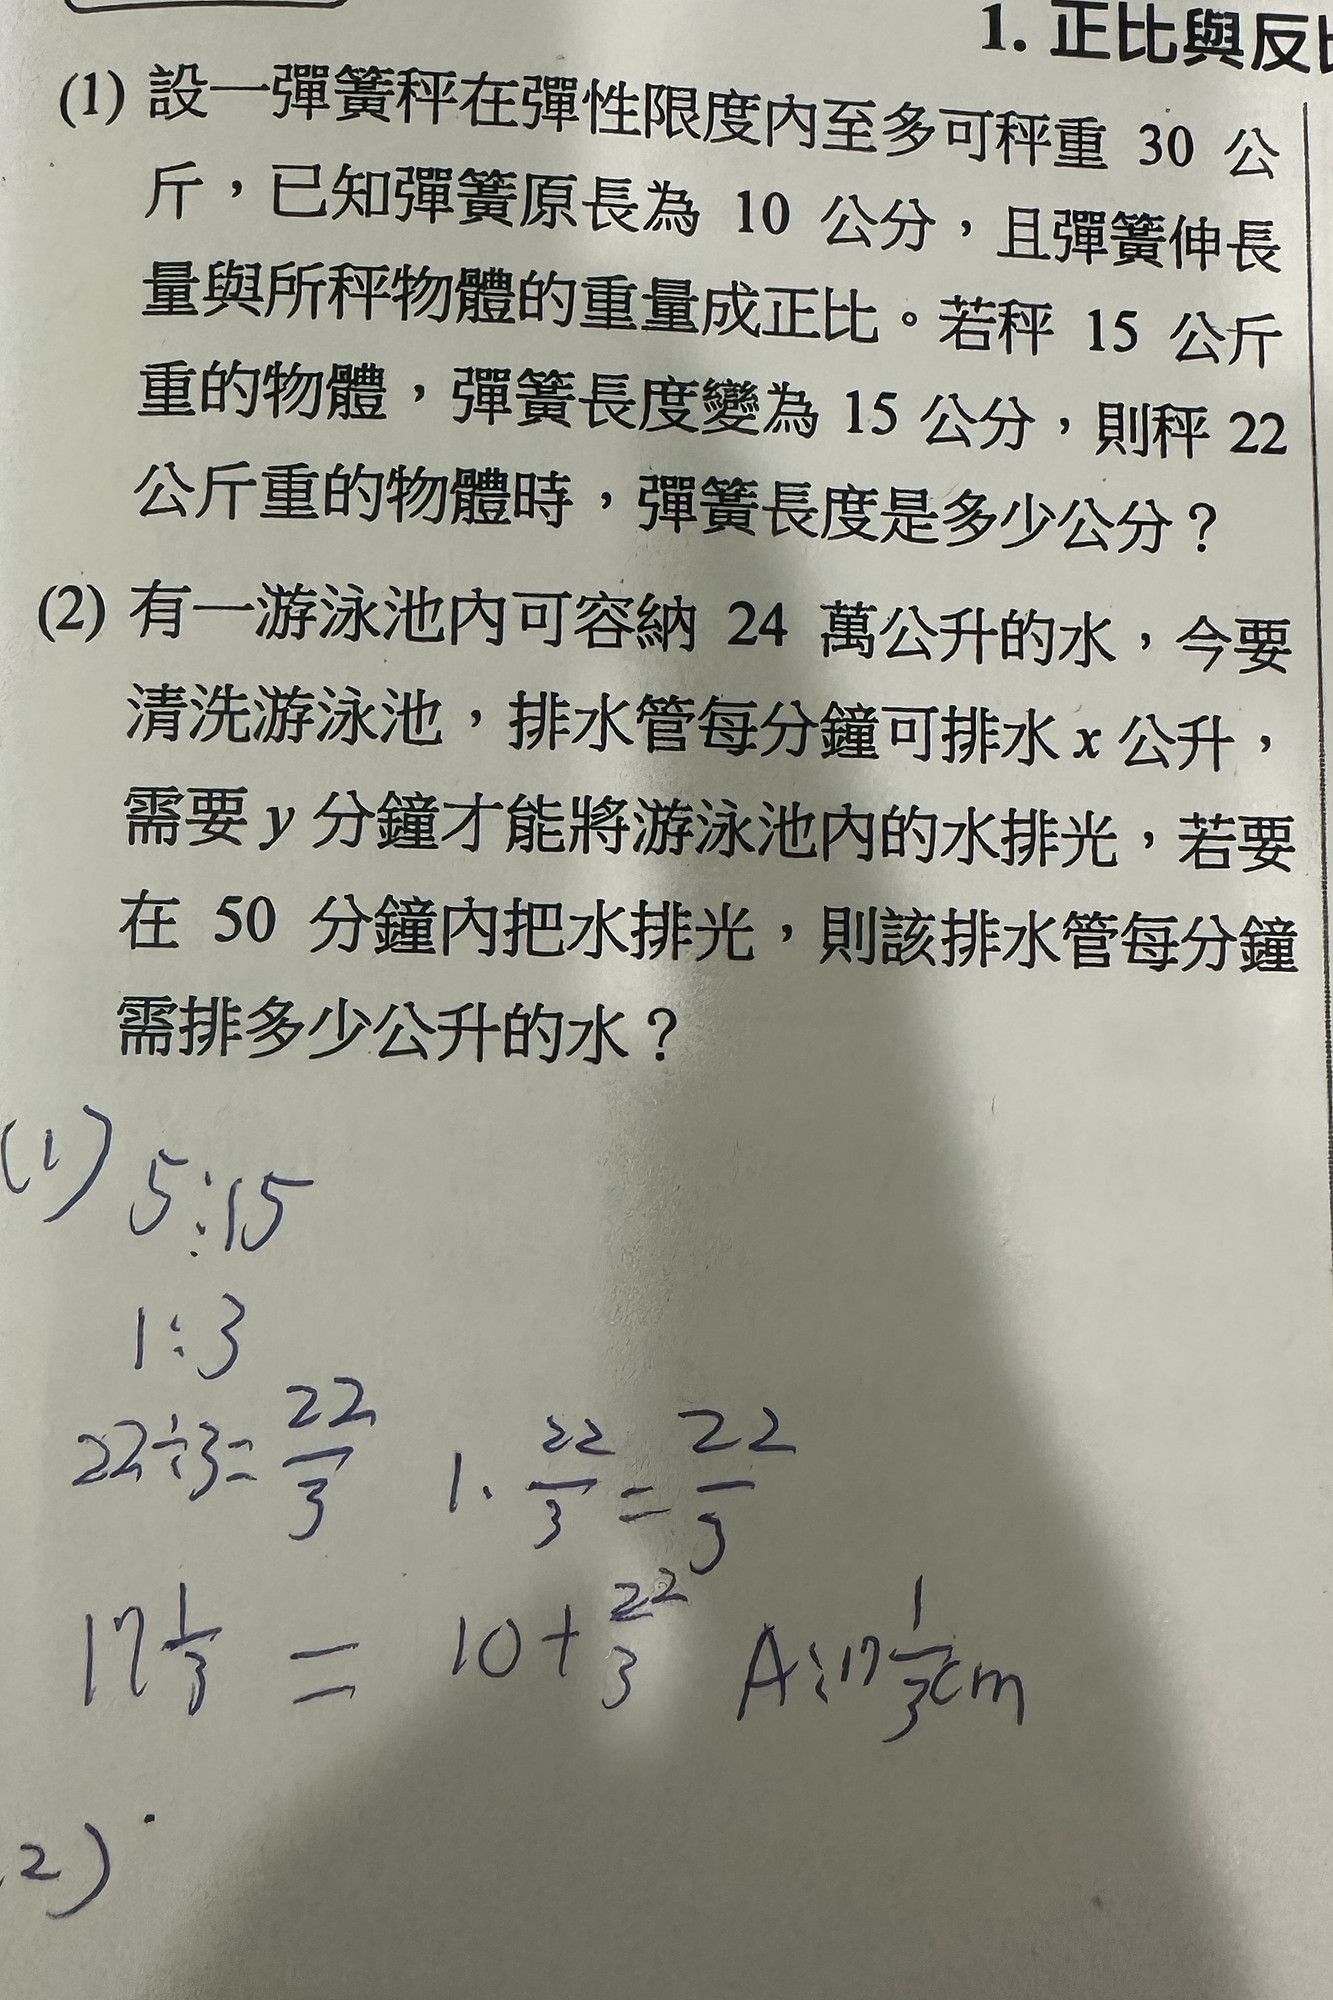 1. 正比與反比
(1) 設一彈簧秤在彈性限度內至多可秤重 30 公
斤，已知彈簧原長為 10 公分，且彈簧伸長
量與所秤物體的重量成正比。若秤 15 公斤
重的物體，彈簧長度變為 15 公分，則秤 22
公斤重的物體時，彈簧長度是多少公分？
(2) 有一游泳池內可容納 24 萬公升的水，今要
清洗游泳池，排水管每分鐘可排水 x 公升，
需要 y 分鐘才能將游泳池內的水排光，若要
在 50 分鐘內把水排光，則該排水管每分鐘
需排多少公升的水？
(1) 5:15
1:3
22÷3=22/3 1·22/3=22/3
17 1/3 = 10+22/3 A:17 1/3cm
2)